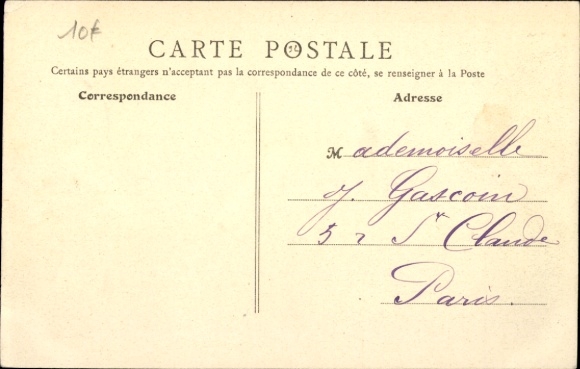 10€
CARTE POSTALE
Certains pays étrangers n'acceptant pas la correspondance de ce côté, se renseigner à la Poste
Correspondance
Adresse
Mademoiselle
J. Gascoin
5 r St Claude
Paris.